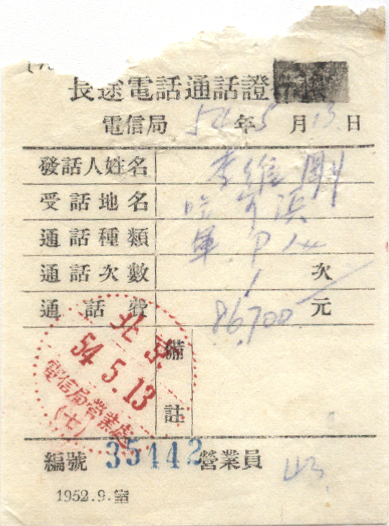 長途電話通話證
電信局 54 年 5 月 13 日
發話人姓名 李維剛
受話地名 哈尔滨
通話種類
通話次數 1 次
通話費 86,700 元
備註
北京
54.5.13
電信局營業處
(七)
編號 35442 營業員
1952.9.室